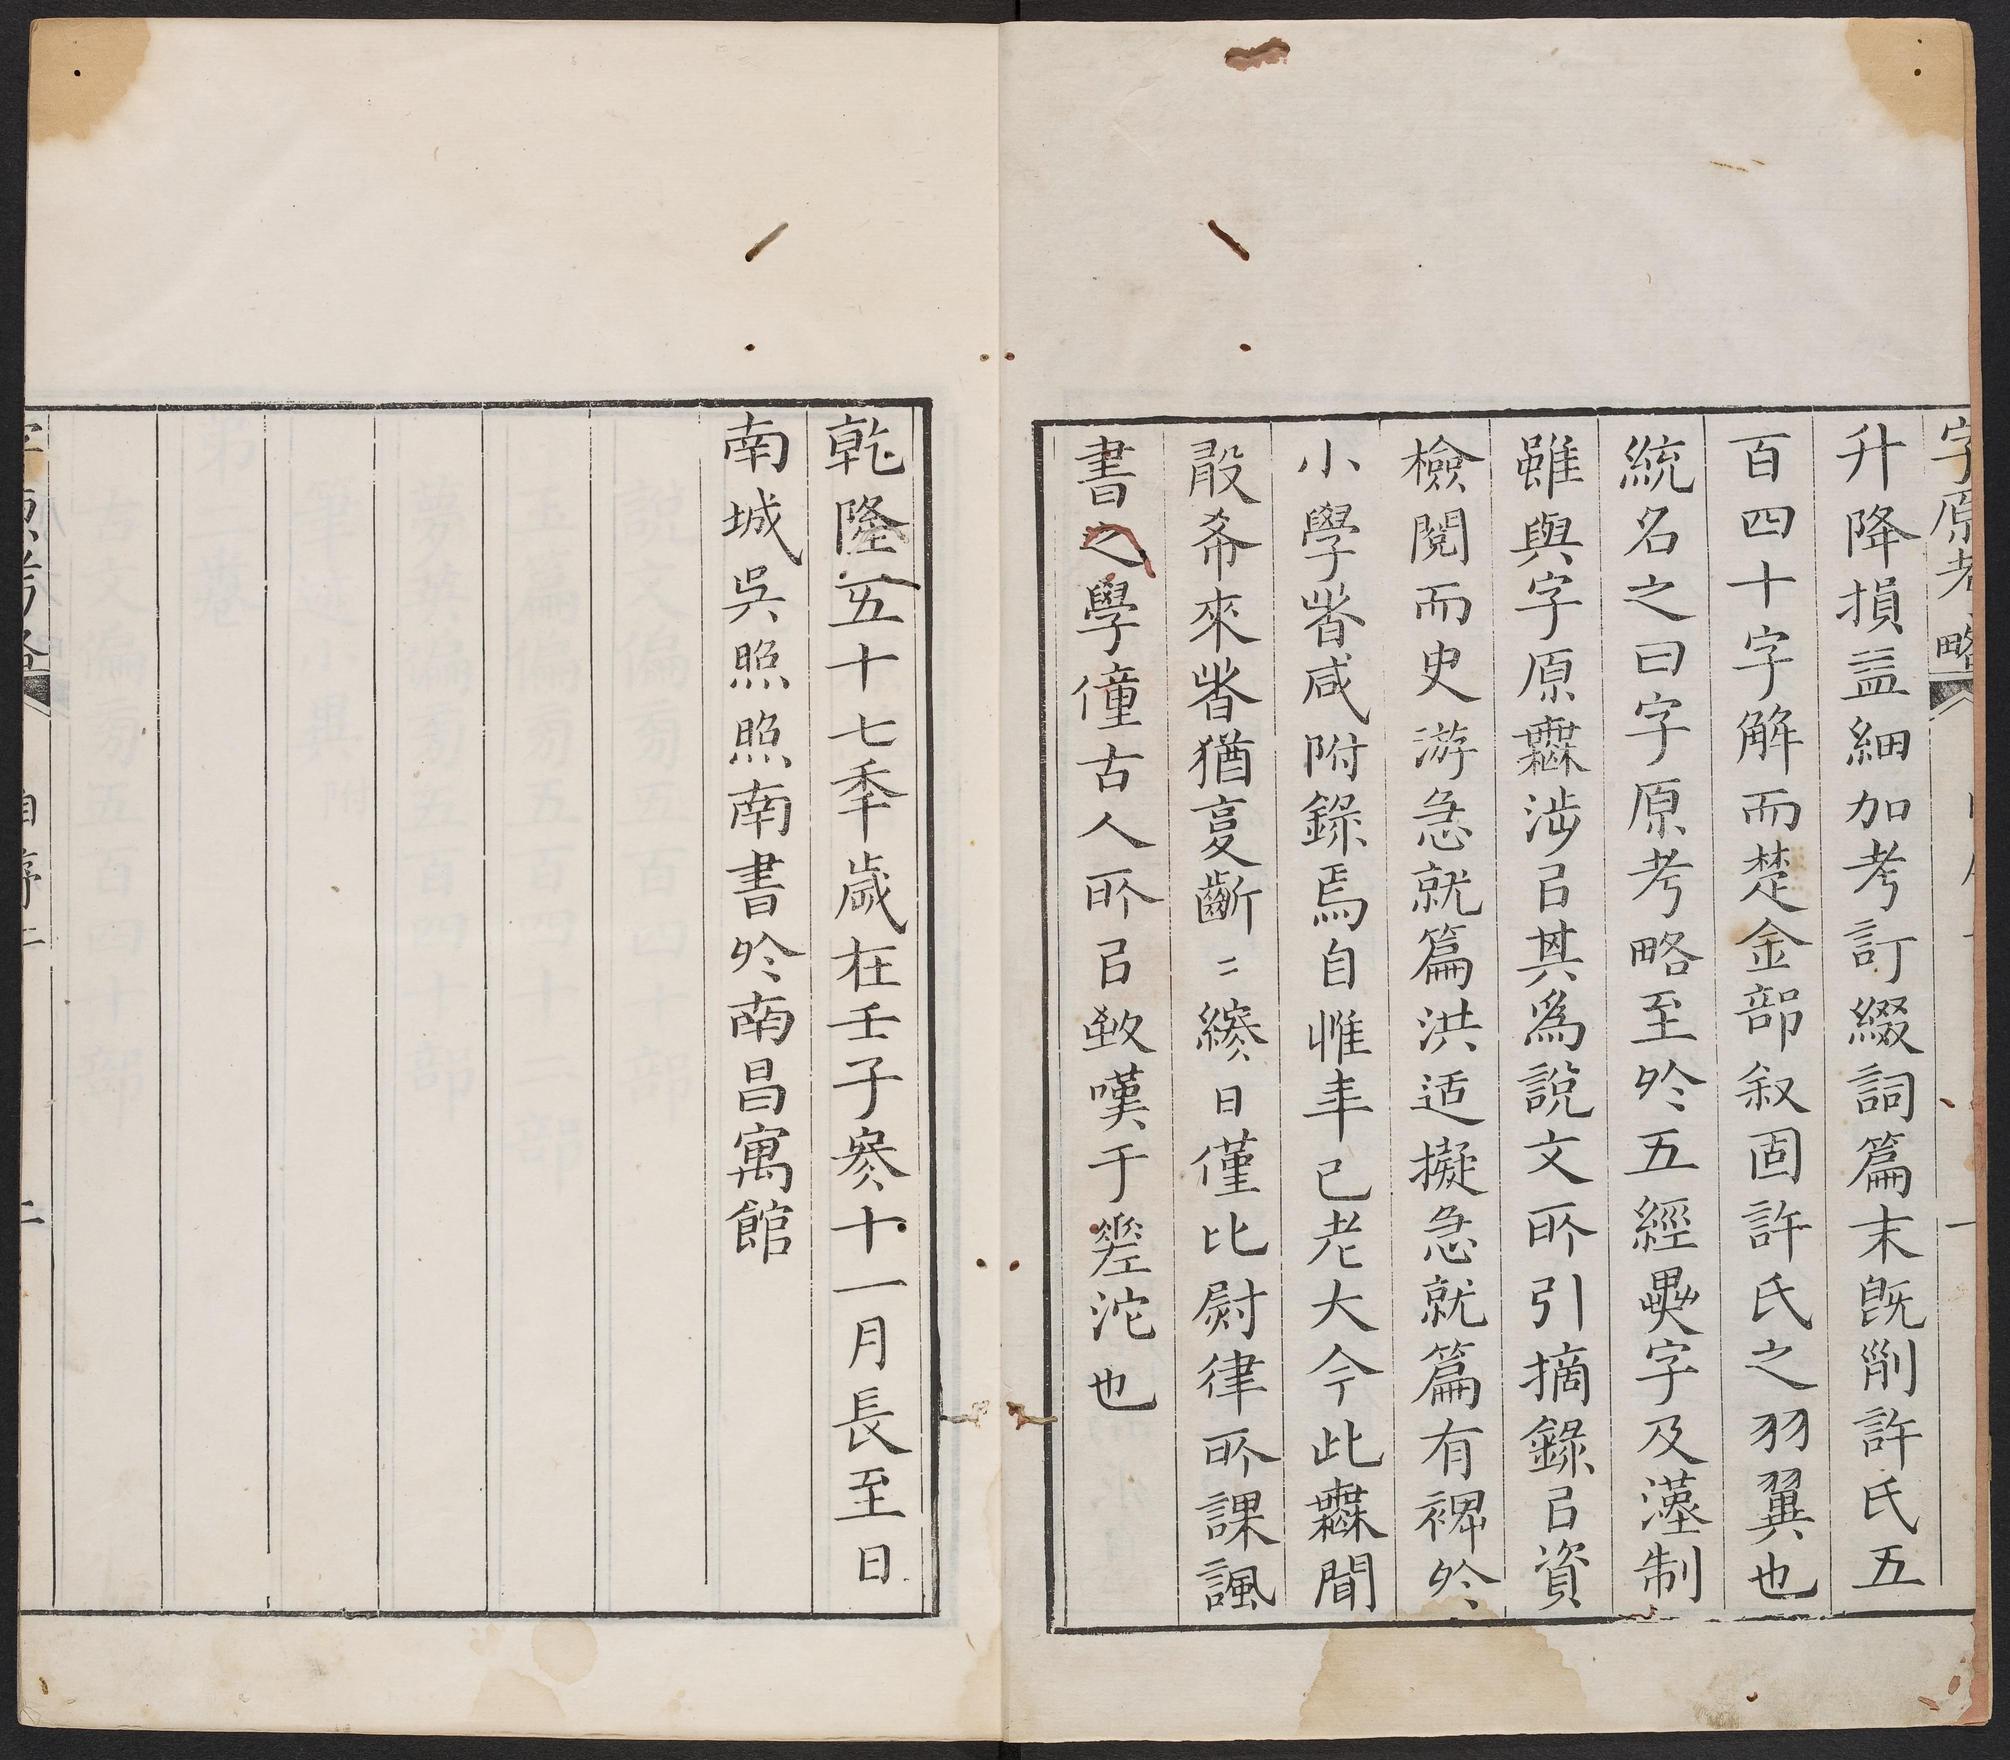 字原考略 一
升降損益細加考訂綴詞篇末旣削許氏五
百四十字解而楚金部叙固許氏之羽翼也
統名之曰字原考略至於五經異字及漢制
雖與字原無涉㠯其爲說文所引摘錄㠯資
檢閱而史游急就篇洪适擬急就篇有裨於
小學者咸附錄焉自惟秊已老大今此無聞
股希來者猶复齗〻縿日僅比尉律所課諷
書之學僮古人所㠯致嘆于差沱也
乾隆五十七秊歲在壬子參十一月長至日
南城吳照照南書於南昌寓館
字原考畧 自序 二